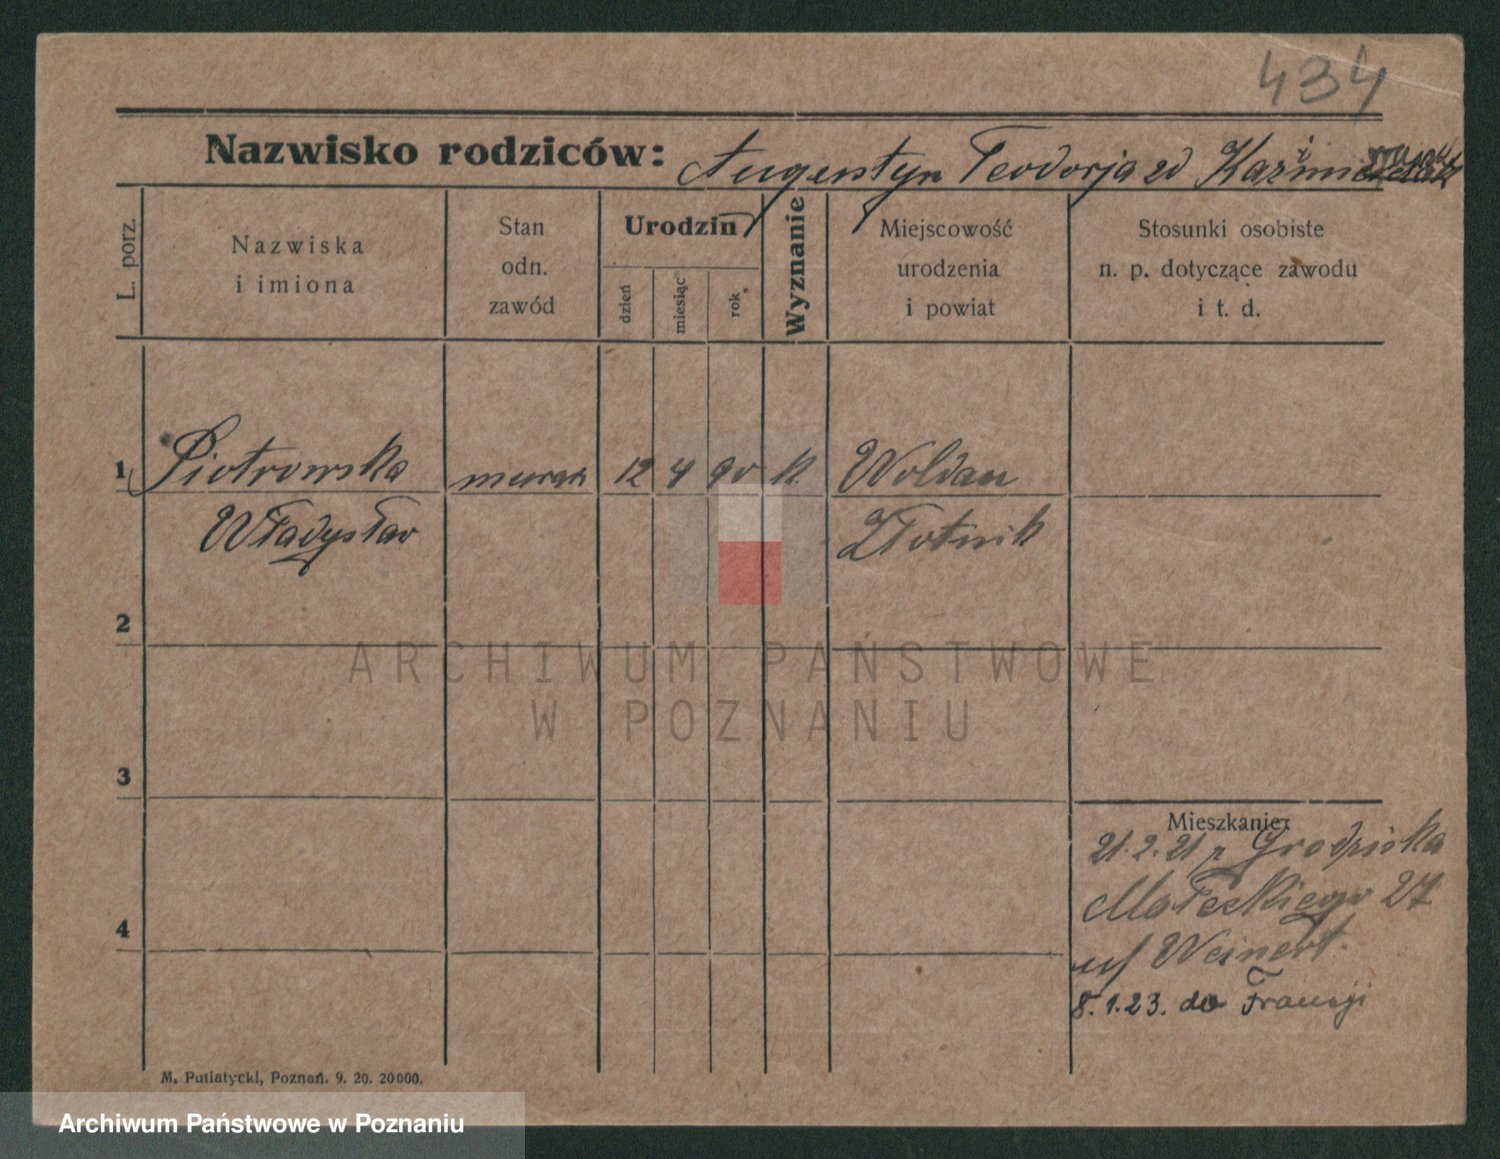 434
Nazwisko rodziców: Augustyn Teodorja zd
L. porz.
Nazwiska
i imiona
Stan
odn.
zawód
Urodzin
dzień
miesiąc
rok
Wyznanie
Miejscowość
urodzenia
i powiat
Stosunki osobiste
n. p. dotyczące zawodu
i t. d.
1 Piotrowska murarz 12 4 90 k. Woldan
Władysław Złotnik
2
ARCHIWUM PAŃSTWOWE
W POZNANIU
3
Mieszkanie:
21.2.21 z Grodziska
Małeckiego 27
Weinert.
4
8.1.23. do Francji
M. Putiatycki, Poznań. 9. 20. 20000.
Archiwum Państwowe w Poznaniu